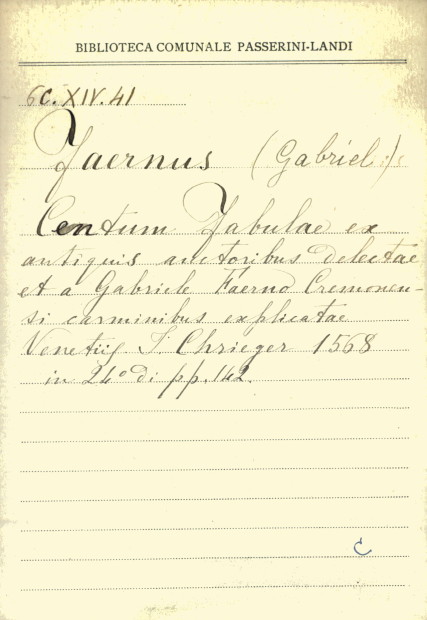 BIBLIOTECA COMUNALE PASSERINI-LANDI
6C.XIV.41
Faernus (Gabriel:):
Centum Fabulae ex
antiquis auctoribus delectae
et a Gabriele Faerno Cremonen-
si carminibus explicatae
Venetiis I. Chrieger 1568
in 24° di pp. 142.
C